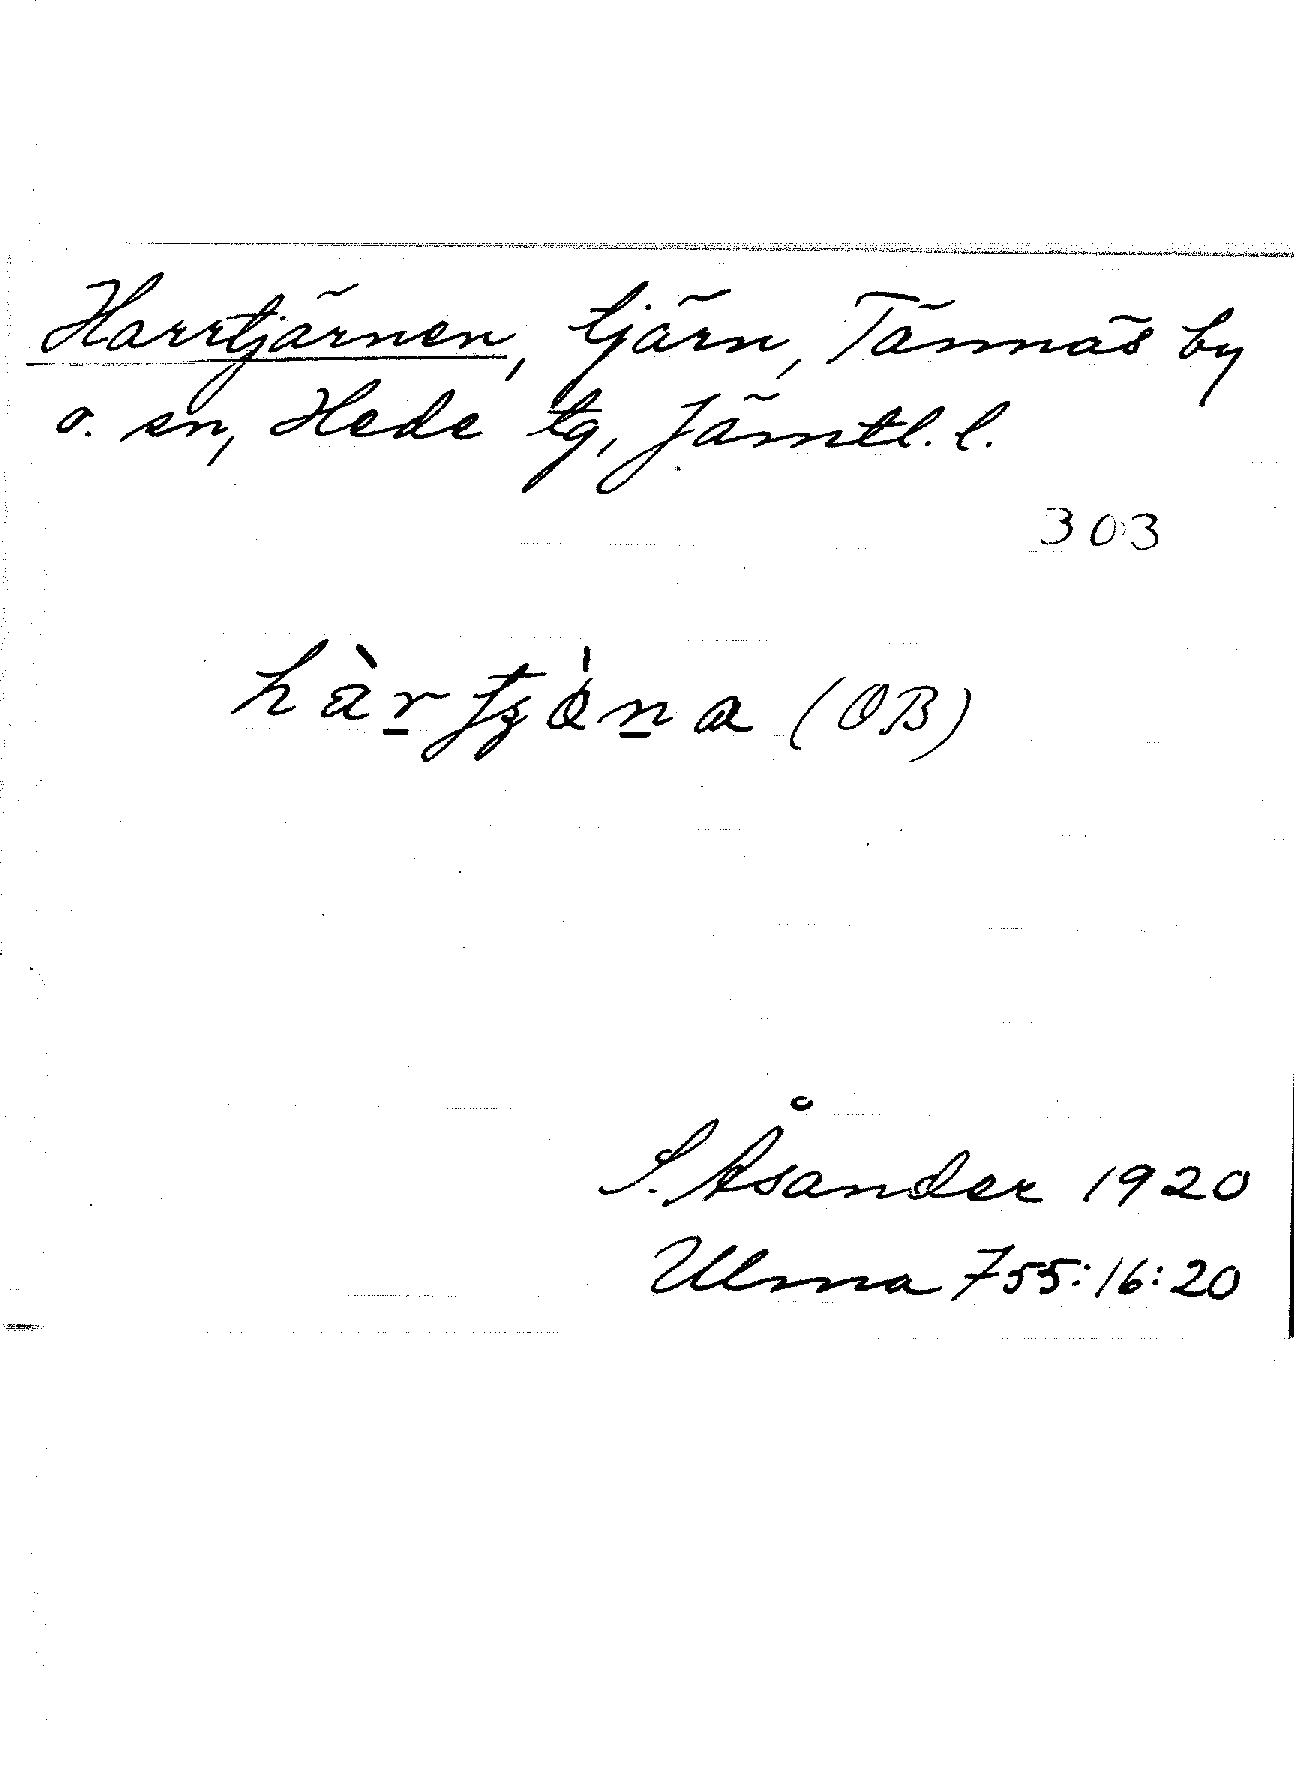 Harrtjärnen, tjärn, Tännäs by
o. sn, Hede tg, Jämtl. l.
303
(OB)
S. Åsander 1920
Ulma 755:16:20